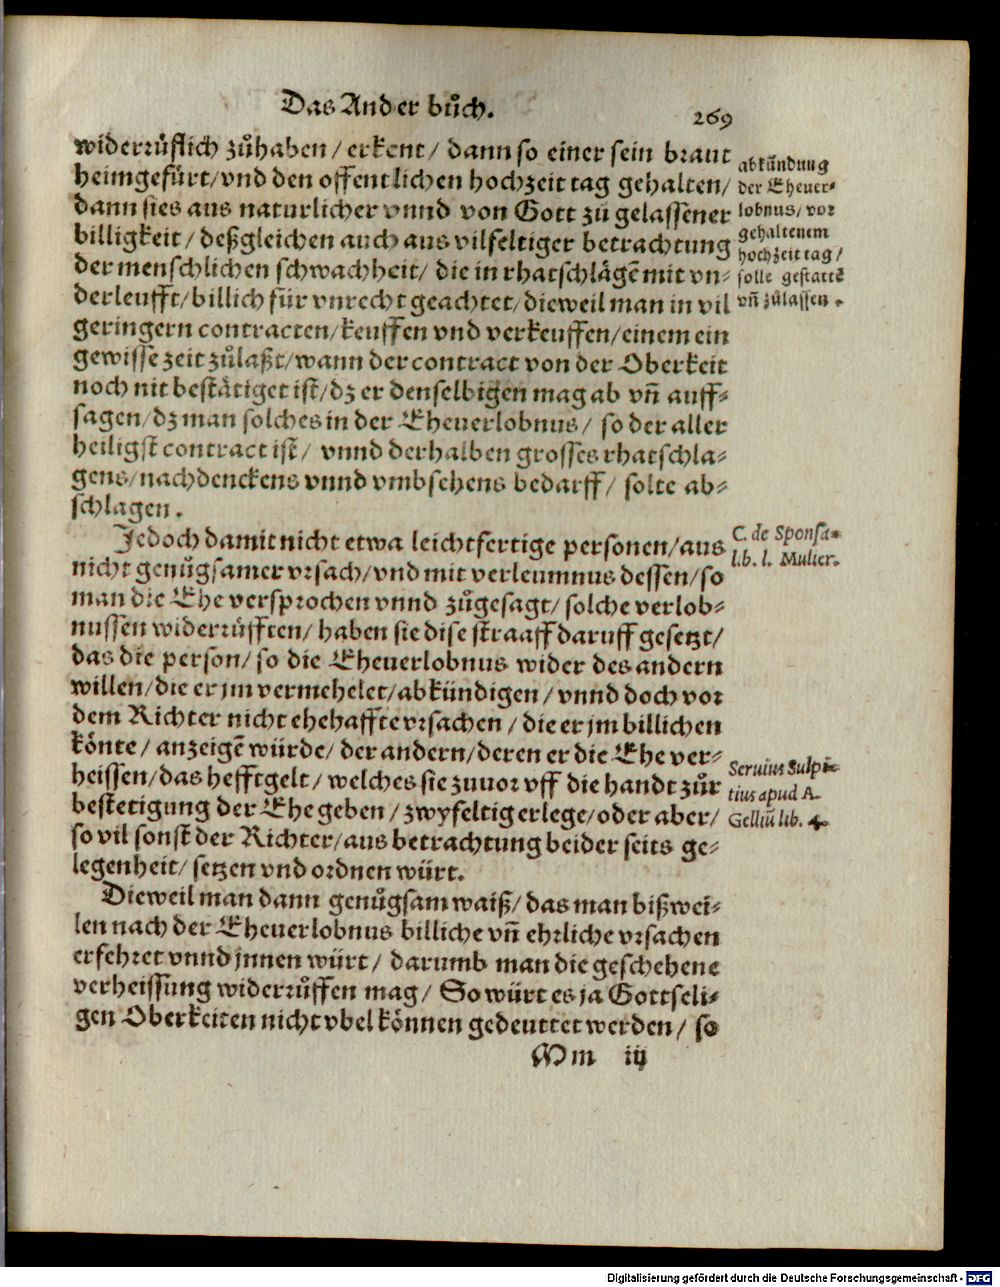 Das Ander bůch.
269
widerrůflich zůhaben / erkent / dann so einer sein braut
heimgefürt / vnd den offentlichen hochzeit tag gehalten /
dann sies aus naturlicher vnnd von Gott zů gelassener
billigkeit / deßgleichen auch aus vilfeltiger betrachtung
der menschlichen schwachheit / die in rhatschlägẽ mit vn-
derleufft / billich für vnrecht geachtet / dieweil man in vil
geringern contracten / keuffen vnd verkeuffen / einem ein
gewisse zeit zůlaßt / wann der contract von der Oberkeit
noch nit bestätiget ist / dz er denselbigen mag ab vñ auff-
sagen / dz man solches in der Eheuerlobnus / so der aller
heiligst contract ist / vnnd derhalben grosses rhatschla-
gens / nachdenckens vnnd vmbsehens bedarff / solte ab-
schlagen.
abkündung
der Eheuer-
lobnus / vor
gehaltenem
hochzeit tag /
solle gestattẽ
vñ zůlassen.
Jedoch damit nicht etwa leichtfertige personen / aus
nicht genůgsamer vrsach / vnd mit verleumnus dessen / so
man die Ehe versprochen vnnd zůgesagt / solche verlob-
nussen widerrůfften / haben sie dise straaff daruff gesetzt /
das die person / so die Eheuerlobnus wider des andern
willen / die er jm vermehelet / abkündigen / vnnd doch vor
dem Richter nicht ehehaffte vrsachen / die er jm billichen
könte / anzeigẽ würde / der andern / deren er die Ehe ver-
heissen / das hefftgelt / welches sie zuuor vff die handt zůr
bestetigung der Ehe geben / zwyfeltig erlege / oder aber /
so vil sonst der Richter / aus betrachtung beider seits ge-
legenheit / setzen vnd ordnen würt.
C. de Sponsa-
lib. l. Mulier.
Seruius Sulpi-
tius apud A.
Gelliũ lib. 4.
Dieweil man dann genůgsam waiß / das man bißwei-
len nach der Eheuerlobnus billiche vñ ehrliche vrsachen
erfehret vnnd jnnen würt / darumb man die geschehene
verheissung widerrůffen mag / So würt es ja Gottseli-
gen Oberkeiten nicht vbel können gedeuttet werden / so
Mm iij
Digitalisierung gefördert durch die Deutsche Forschungsgemeinschaft - DFG